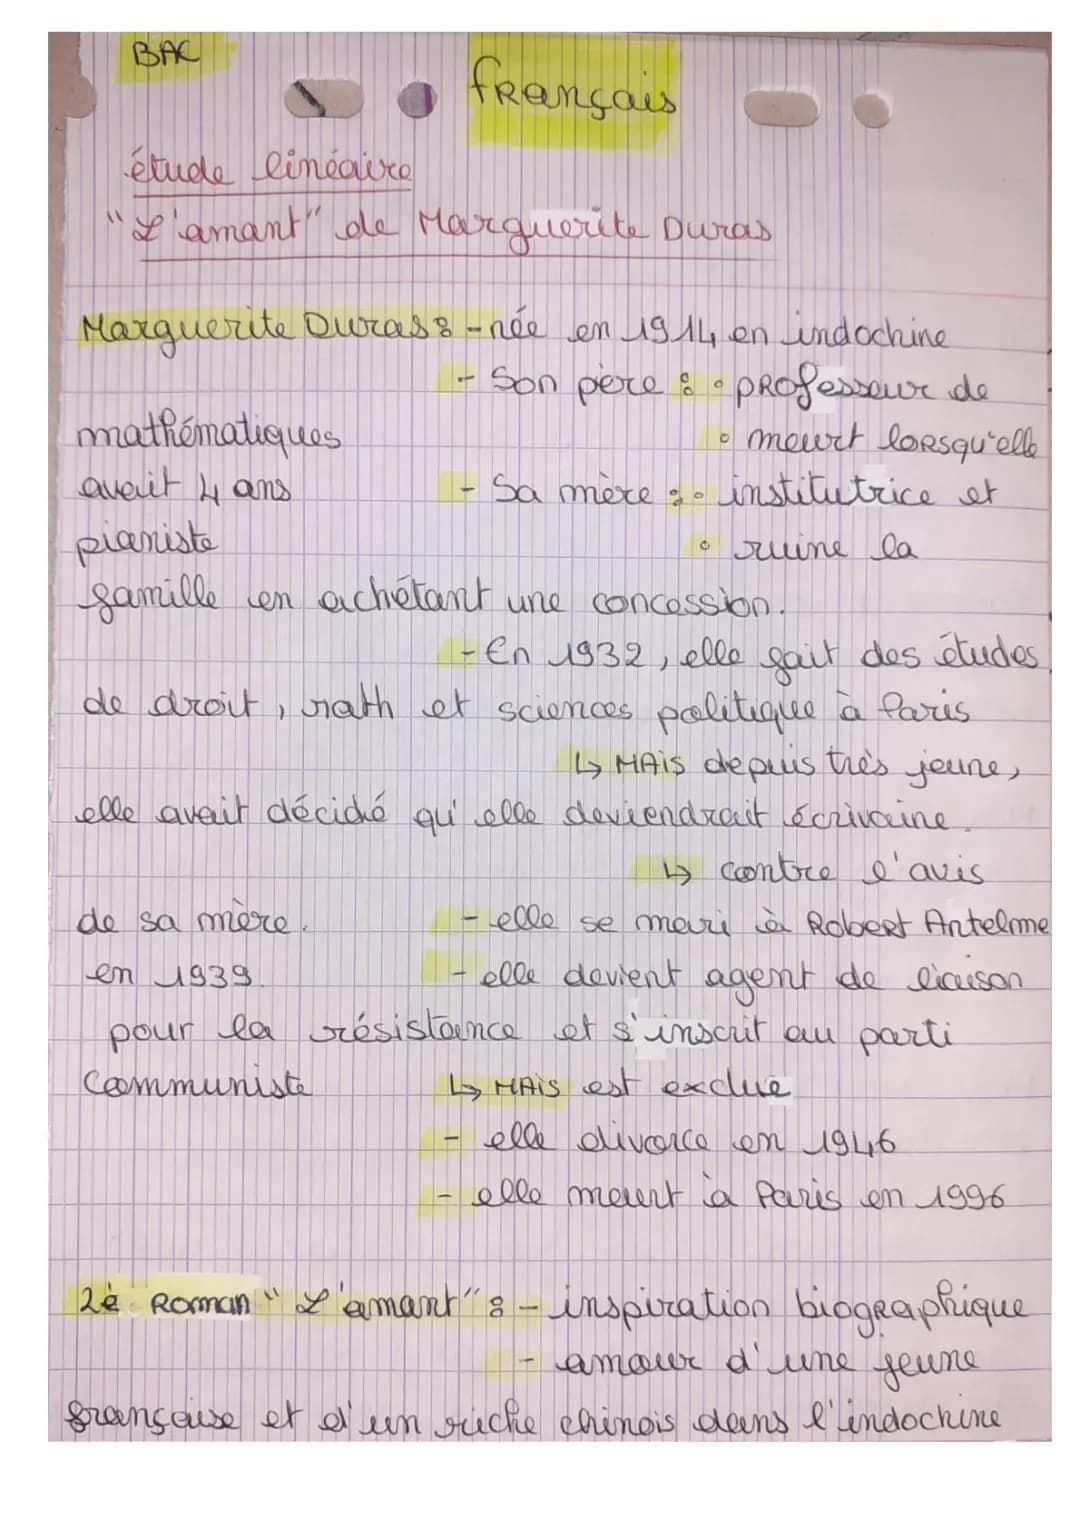 BAC
français
étude linéaire
"L'amant" de Marguerite Duras
Marguerite Duras : - née en 1914 en indochine
- Son père : ∘ professeur de
mathématiques ∘ meurt lorsqu'elle
avait 4 ans - Sa mère : ∘ institutrice et
pianiste ∘ ruine la
famille en achétant une concession.
- En 1932, elle fait des études
de droit, math et sciences politique à Paris
↳ MAIS depuis très jeune,
elle avait décidé qu'elle deviendrait écrivaine.
↳ contre l'avis
de sa mère. - elle se mari à Robert Antelme
en 1939. - elle devient agent de liaison
pour la résistance et s'inscrit au parti
Communiste ↳ MAIS est exclue
- elle divorce en 1946
- elle meurt à Paris en 1996
2è Roman "L'amant" : - inspiration biographique
- amour d'une jeune
française et d'un riche chinois dans l'indochine